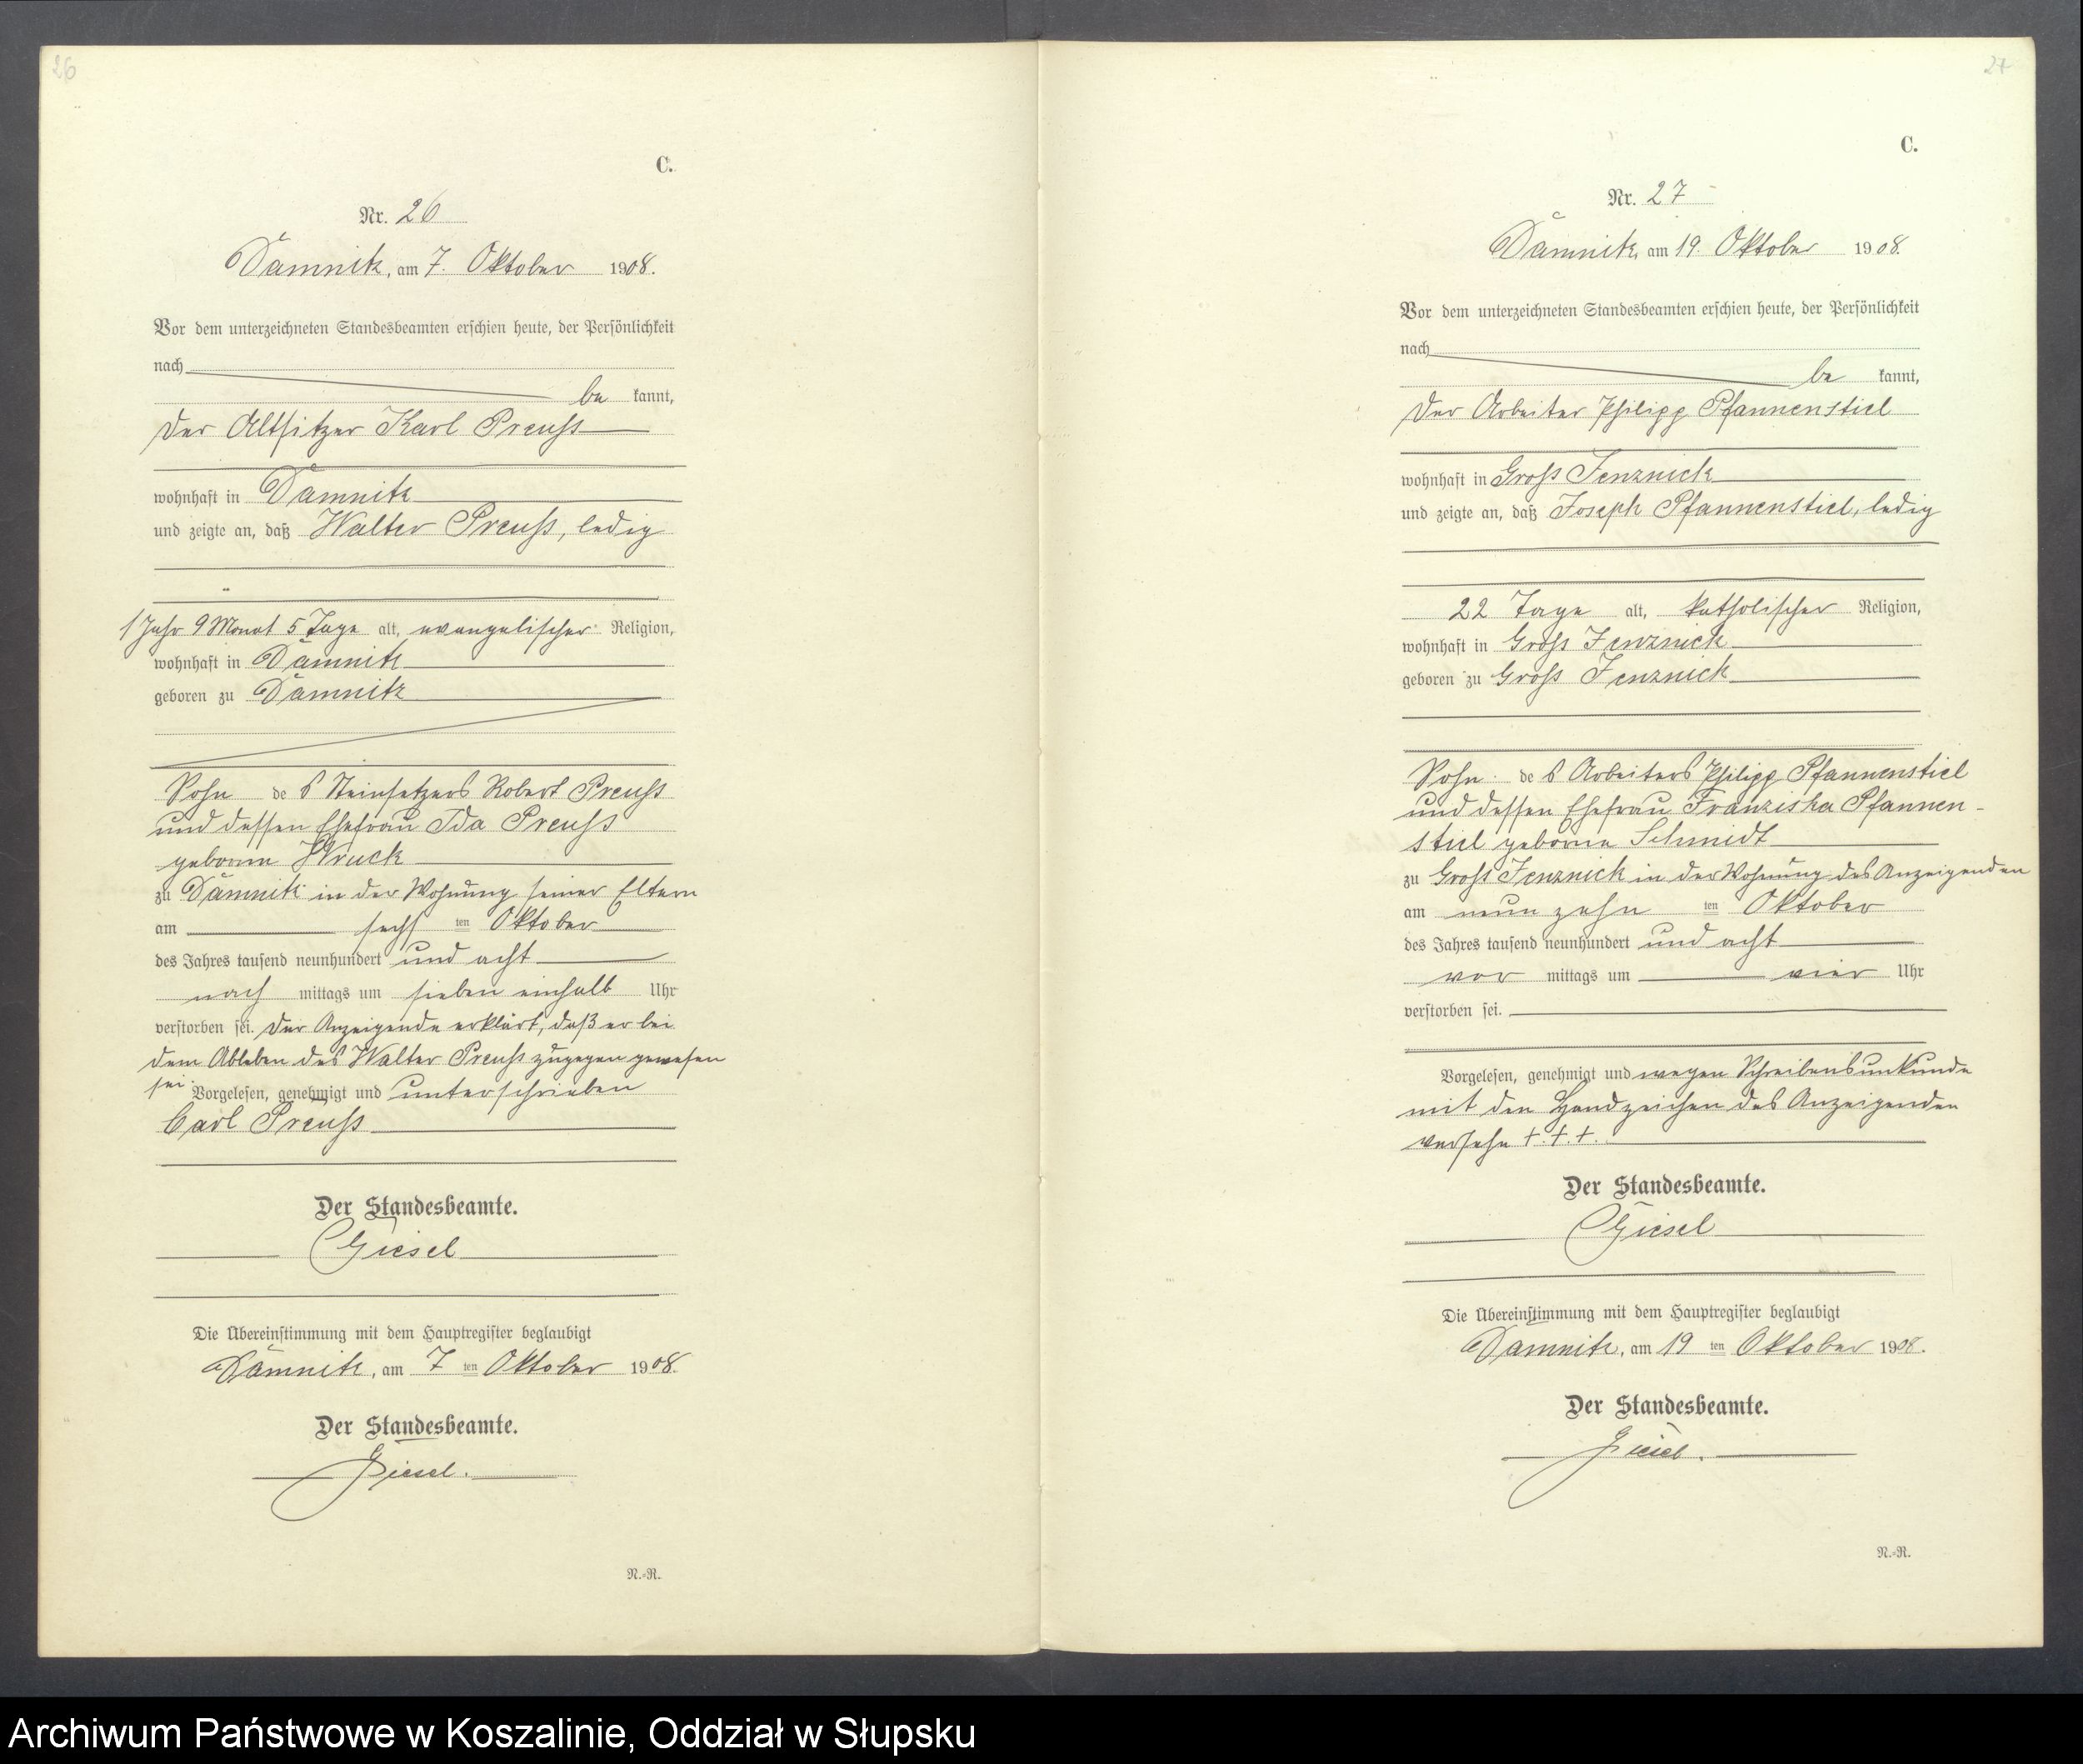 26
C.
Nr. 26
Dämnitz, am 7. Oktober 1908.
Vor dem unterzeichneten Standesbeamten erschien heute, der Persönlichkeit
nach
be kannt,
der Altsitzer Karl Preuß
wohnhaft in Dämnitz
und zeigte an, daß Walter Preuß, ledig
1 Jahr 9 Monat 5 Tage alt, evangelischer Religion,
wohnhaft in Dämnitz
geboren zu Dämnitz
Sohn des Steinsetzers Robert Preuß
und dessen Ehefrau Ida Preuß
geborne Wruck
zu Dämnitz in der Wohnung seiner Eltern
am sechs ten Oktober
des Jahres tausend neunhundert und acht
nach mittags um sieben einhalb Uhr
verstorben sei. Der Anzeigende erklärt, daß er bei
dem Ableben des Walter Preuß zugegen gewesen
sei Vorgelesen, genehmigt und unterschrieben
Carl Preuß
Der Standesbeamte.
Giesel
Die Übereinstimmung mit dem Hauptregister beglaubigt
Dämnitz, am 7 ten Oktober 1908.
Der Standesbeamte.
Giesel.
N.=R.
27
C.
Nr. 27
Dämnitz, am 19. Oktober 1908.
Vor dem unterzeichneten Standesbeamten erschien heute, der Persönlichkeit
nach
be kannt,
der Arbeiter Philipp Pfannenstiel
wohnhaft in Groß Jenznick
und zeigte an, daß Joseph Pfannenstiel, ledig
22 Tage alt, katholischer Religion,
wohnhaft in Groß Jenznick
geboren zu Groß Jenznick
Sohn des Arbeiters Philipp Pfannenstiel
und dessen Ehefrau Franziska Pfannen-
stiel geborne Schmidt
zu Groß Jenznick in der Wohnung des Anzeigenden
am neun zehn ten Oktober
des Jahres tausend neunhundert und acht
vor mittags um vier Uhr
verstorben sei.
Vorgelesen, genehmigt und wegen Schreibensunkunde
mit den Handzeichen des Anzeigenden
versehn +.+.+.
Der Standesbeamte.
Giesel
Die Übereinstimmung mit dem Hauptregister beglaubigt
Dämnitz, am 19 ten Oktober 1908.
Der Standesbeamte.
Giesel.
N.=R.
Archiwum Państwowe w Koszalinie, Oddział w Słupsku